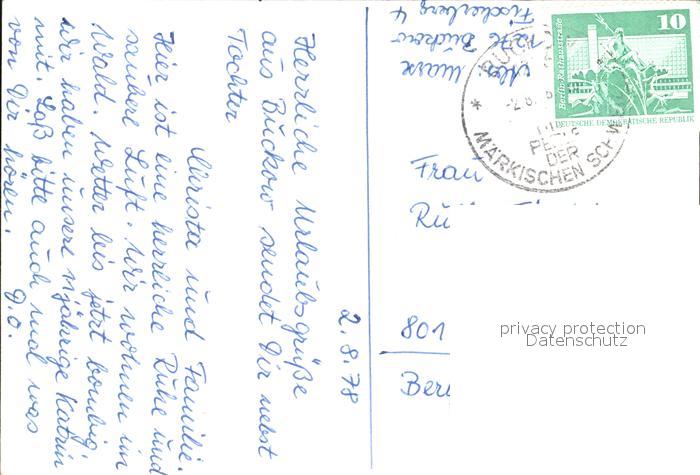 2.8.78
Herrliche Urlaubsgrüße
aus Buckow sendet Dir nebst
Tochter
Christa und Familie.
Hier ist eine herrliche Ruhe und
saubere Luft. Wir wohnen im
Wald. Wetter bis jetzt bombig.
Wir haben unsere 11jährige Katrin
mit. Laß bitte auch mal was
von Dir hören.
D.O.
Marx
1276 Buckow
Fischerberg 4
10
Berlin, Rathausstraße
DEUTSCHE DEMOKRATISCHE REPUBLIK
PERLE
DER
MÄRKISCHEN SCHWEIZ
Frau
801
privacy protection
Datenschutz